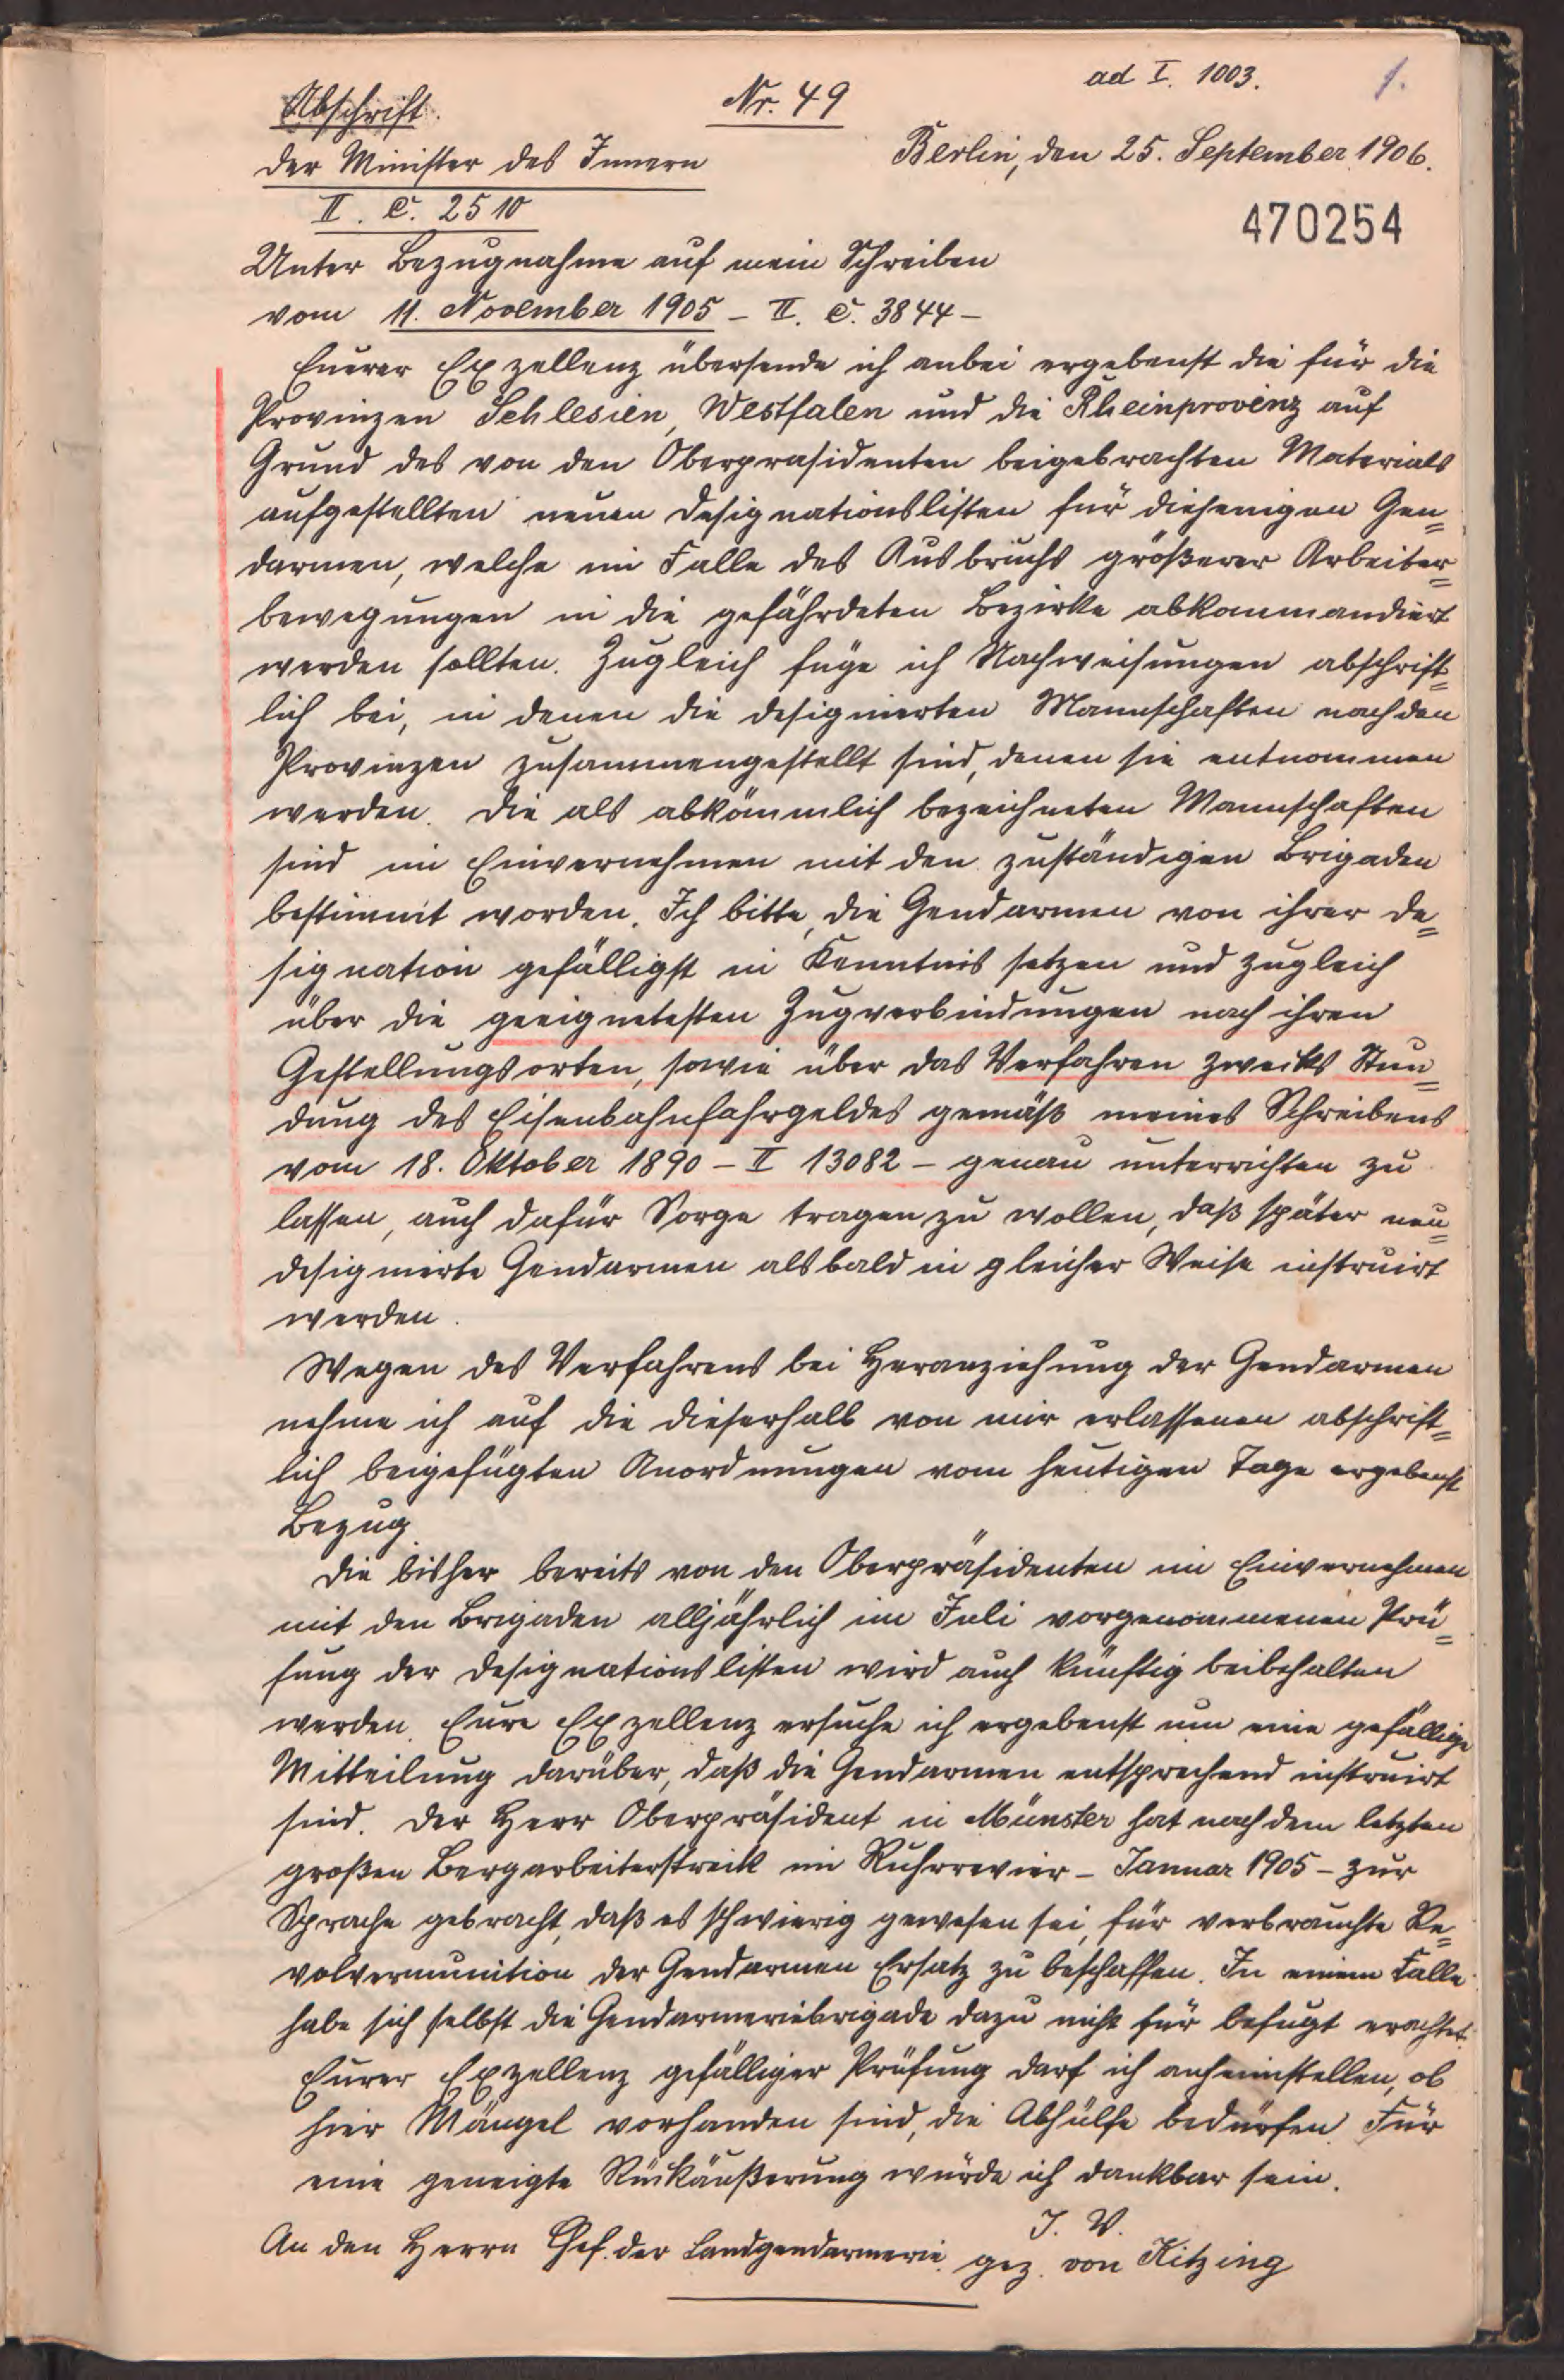 Abschrift.
Nr. 49
ad I. 1003.
1.
Der Minister des Innern
Berlin, den 25. September 1906.
II. C. 2510
470254
Unter Bezugnahme auf mein Schreiben
vom 11. November 1905 – II. C. 3844 –
Eurer Exzellenz übersende ich anbei ergebenst die für die
Provinzen Schlesien, Westfalen und die Rheinprovinz auf
Grund des von den Oberpräsidenten beigebrachten Materials
aufgestellten neuen Designationslisten für diejenigen Gen=
darmen, welche im Falle des Ausbruchs größerer Arbeiter=
bewegungen in die gefährdeten Bezirke abkommandiert
werden sollten. Zugleich füge ich Nachweisungen abschrift=
lich bei, in denen die designierten Mannschaften nach den
Provinzen zusammengestellt sind, denen sie entnommen
werden. Die als abkömmlich bezeichneten Mannschaften
sind im Einvernehmen mit den zuständigen Brigaden
bestimmt worden. Ich bitte, die Gendarmen von ihrer De=
signation gefälligst in Kenntnis setzen und zugleich
über die geeignetesten Zugverbindungen nach ihren
Gestellungsorten, sowie über das Verfahren zwecks Stun=
dung des Eisenbahnfahrgeldes gemäß meines Schreibens
vom 18. Oktober 1890 – II 13082 – genau unterrichten zu
lassen, auch dafür Sorge tragen zu wollen, daß später neu=
designierte Gendarmen alsbald in gleicher Weise instruirt
werden.
Wegen des Verfahrens bei Heranziehung der Gendarmen
nehme ich auf die dieserhalb von mir erlassenen abschrift=
lich beigefügten Anordnungen vom heutigen Tage ergebenst
Bezug.
Die bisher bereits von den Oberpräsidenten im Einvernehmen
mit den Brigaden alljährlich im Juli vorgenommenen Prü=
fung der Designationslisten wird auch künftig beibehalten
werden. Eure Exzellenz ersuche ich ergebenst um eine gefällige
Mitteilung darüber, daß die Gendarmen entsprechend instruirt
sind. Der Herr Oberpräsident in Münster hat nach dem letzten
großen Bergarbeiterstreik im Ruhrrevier – Januar 1905 – zur
Sprache gebracht, daß es schwierig gewesen sei, für verbrauchte Re=
volvermunition der Gendarmen Ersatz zu beschaffen. In einem Falle
habe sich selbst die Gendarmeriebrigade dazu nicht für befugt erachtet.
Eurer Exzellenz gefälliger Prüfung darf ich anheimstellen, ob
hier Mängel vorhanden sind, die Abhülfe bedürfen. Für
eine geneigte Rückäußerung würde ich dankbar sein.
J. V.
An den Herrn Chef der Landgendarmerie. gez. von Kitzing